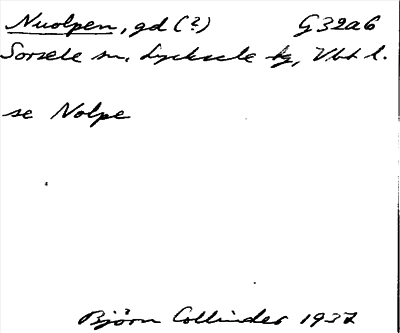 Nuolpen, gd (?) G32a6
Sorsele sn, Lycksele tg, Vbt l.
se Nolpe
Björn Collinder 1937